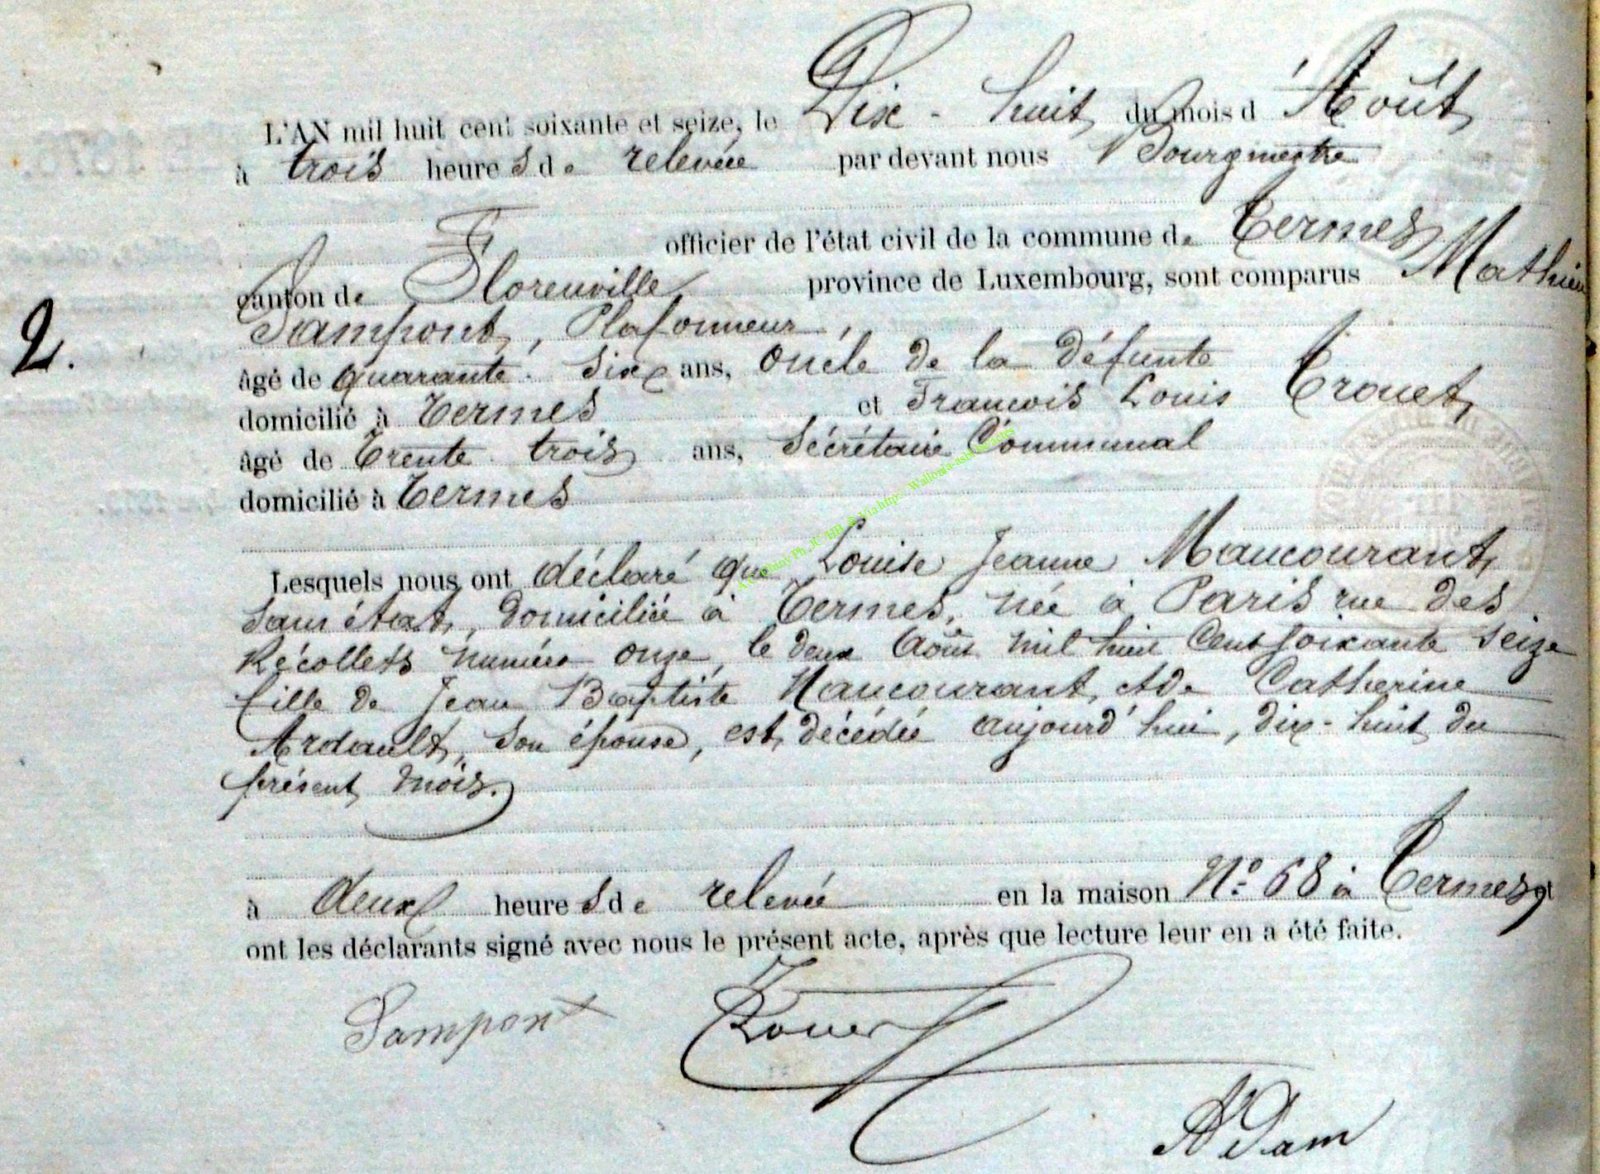 L'AN mil huit cent soixante et seize, le Dix-huit du mois d'Août
à trois heures de relevée par devant nous Bourgmestre
officier de l'état civil de la commune de Termes
canton de Florenville province de Luxembourg, sont comparus Mathieu
Sampont, Plafonneur,
âgé de quarante-six ans, oncle de la défunte
domicilié à Termes et François Louis Trouet,
âgé de Trente trois ans, Sécrétaire Communal
domicilié à Termes
2.
Lesquels nous ont déclaré que Louise Jeanne Maucourant,
sans état, domiciliée à Termes, née à Paris rue des
Récollets numéro onze, le deux Août mil huit Cent soixante seize
fille de Jean Baptiste Maucourant, et de Catherine
Ardault, son épouse, est décédée aujourd'hui, dix-huit du
présent mois.
à deux heures de relevée en la maison N° 68 à Termes et
ont les déclarants signé avec nous le présent acte, après que lecture leur en a été faite.
Sampont Trouet
Adam